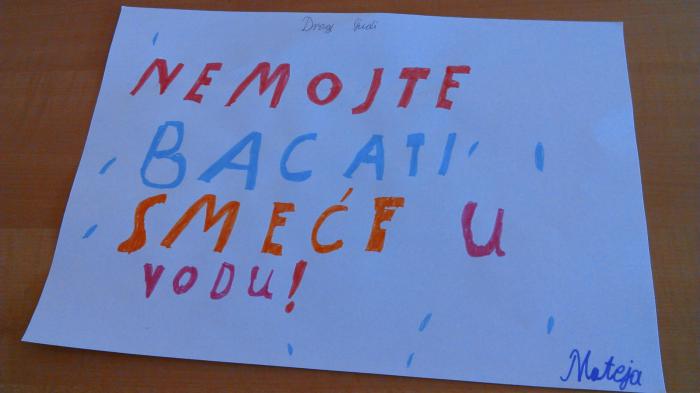 Dragi ljudi
NEMOJTE
BACATI
SMEĆE U
VODU!
Mateja